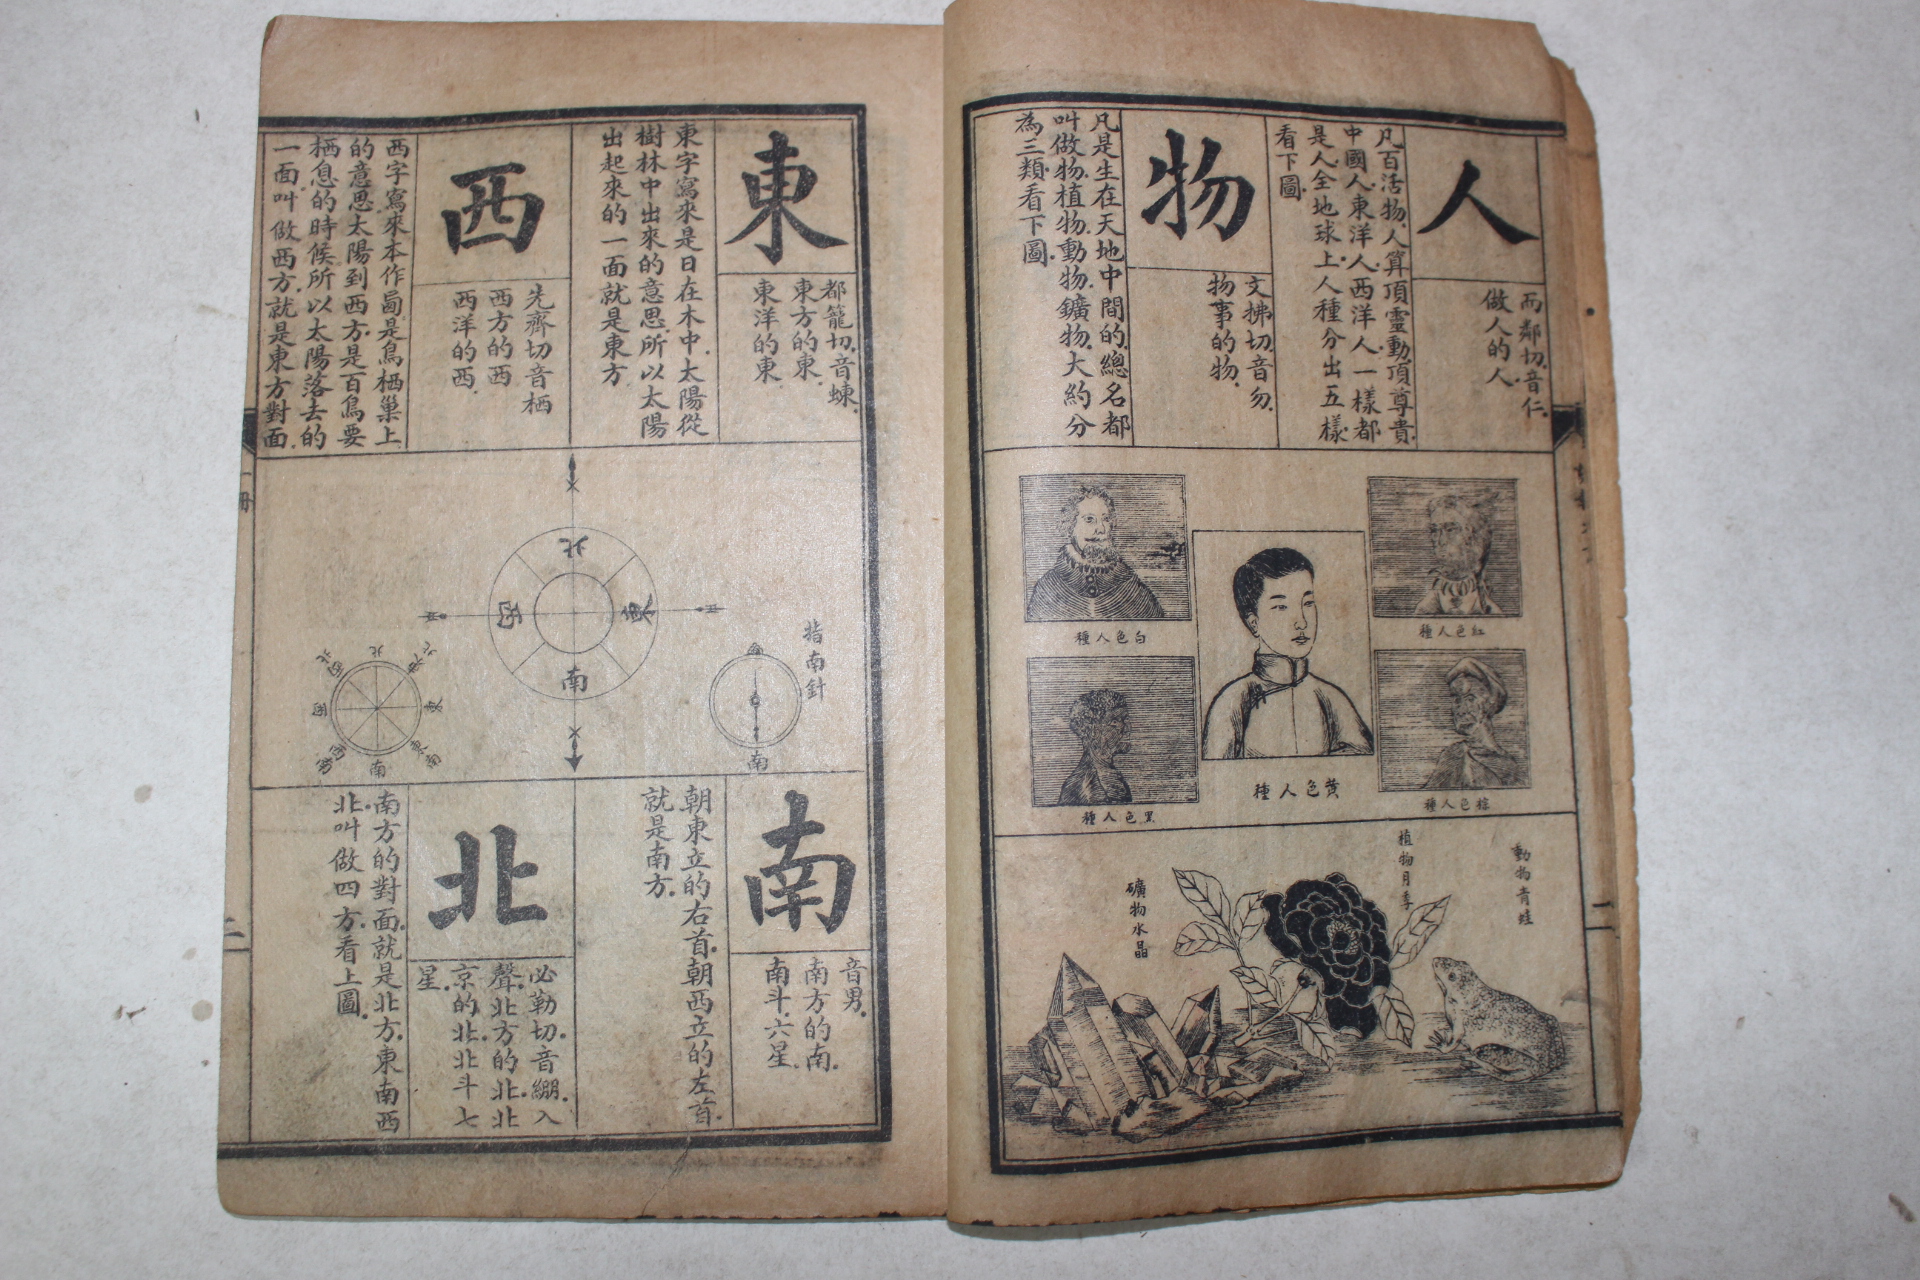 人
而鄰切.音仁.
做人的人
凡百活物.人算頂靈動頂尊貴.
中國人.東洋人西洋人一樣都
是人.全地球上人種分出五樣.
看下圖.
物
文拂切.音勿.
物事的物.
凡是生在天地中間的.總名都
叫做物.植物.動物.鑛物.大約分
為三類.看下圖.
紅色人種
白色人種
黃色人種
棕色人種
黑色人種
動物青蛙
植物月季
礦物水晶
二
東
都籠切.音蝀.
東方的東.
東洋的東.
東字寫來是日在木中.太陽從
樹林中出來的意思.所以太陽
出起來的一面就是東方.
西
先齊切音栖
西方的西
西洋的西.
西字寫來本作㢴是鳥栖巢上
的意思太陽到西方.是百鳥要
栖息的時候所以太陽落去的
一面.叫做西方.就是東方對面.
指南針
南
北
東
南
西
北
東
東南
南
西南
西
西北
南
音男.
南方的南.
南斗.六星.
朝東立的右首.朝西立的左首.
就是南方.
北
必勒切.音繃.入
聲.北方的北.北
京的北.北斗七
星.
南方的對面.就是北方.東南西
北.叫做四方.看上圖.
一冊
二